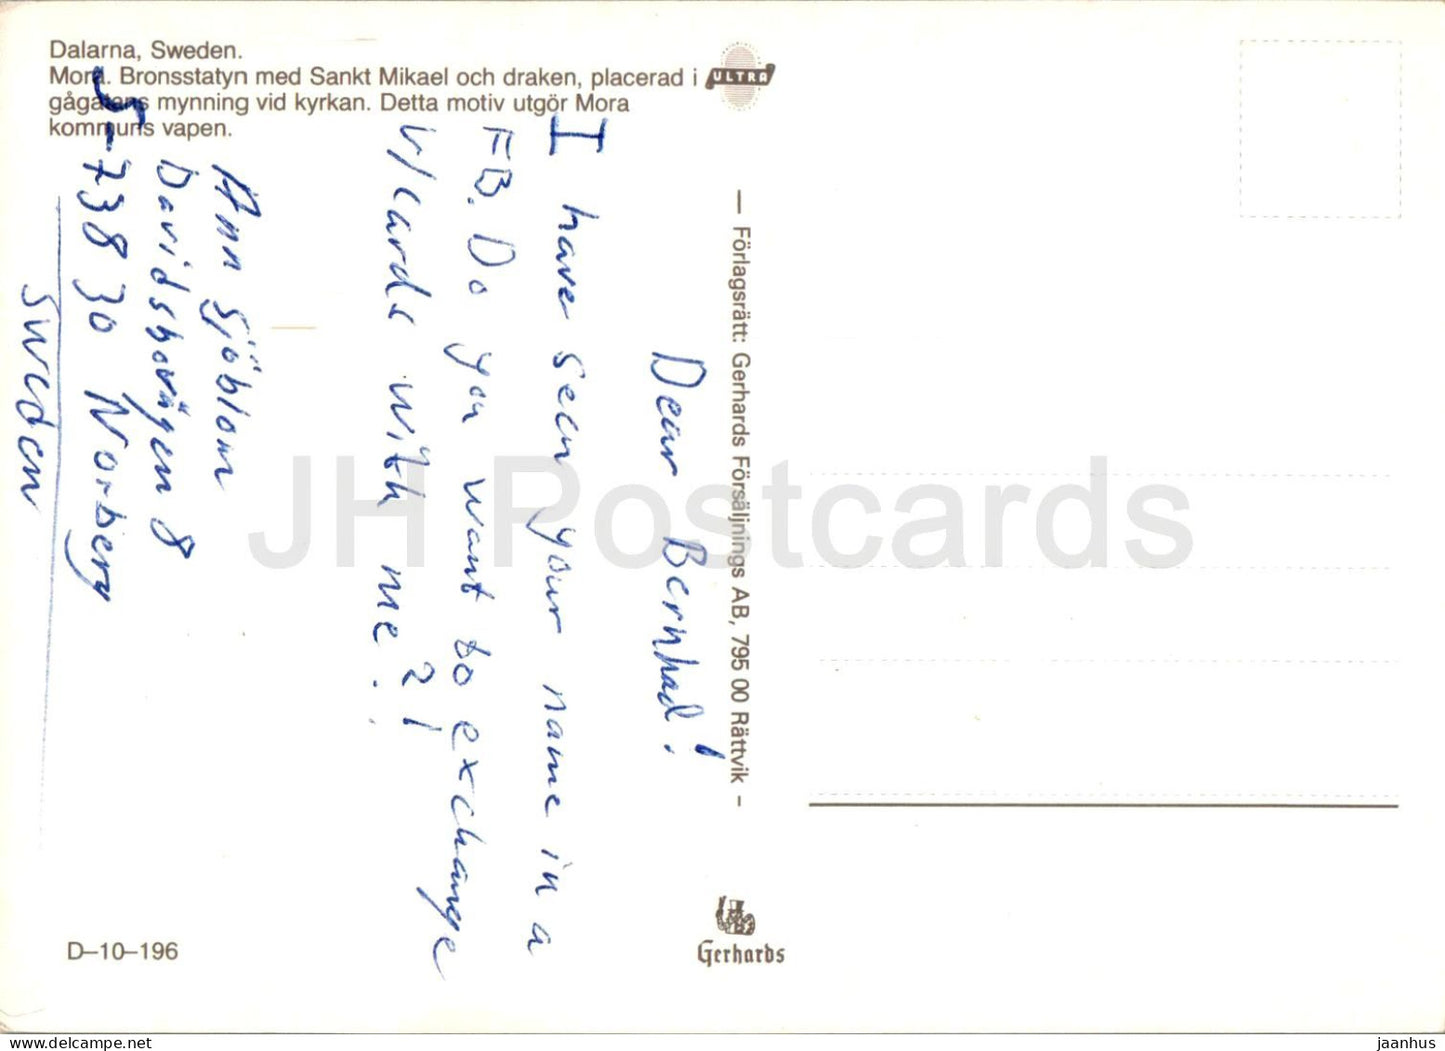 Dalarna, Sweden.
Mora. Bronsstatyn med Sankt Mikael och draken, placerad i
gågatans mynning vid kyrkan. Detta motiv utgör Mora
kommuns vapen.
ULTRA
Dear Bernhad!
I have seen your name in a
FB. Do you want to exchange
v/cards with me?!
Ann Sjöblom
Davidsbovägen 8
S-738 30 Norberg
Sweden
— Förlagsrätt: Gerhards Försäljnings AB, 795 00 Rättvik –
Gerhards
D–10–196
JH Postcards
Postcards store
jaanhus